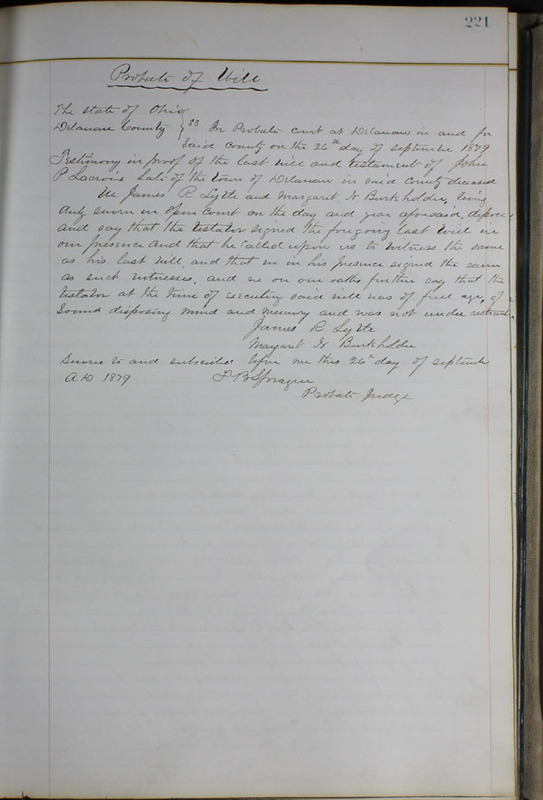 221
Probate of Will
The State of Ohio
Delaware County } SS In Probate court at Delaware in and for
said County on the 26th day of September 1879
Testimony in proof of the last will and testament of John
P Lacroix Late of the Town of Delaware in said County deceased
We James R Lytle and Margaret H Burkholder, being
duly sworn in Open Court on the day and year aforesaid, depose
and say that the testator signed the foregoing last Will in
our presence and that he called upon us to witness the same
as his last will and that we in his presence signed the same
as such witnesses, and we on our oaths further say that the
testator at the time of executing said will was of full age, of
Sound disposing mind and memory and was not under restraint
James R Lytle
Margaret H Burkholder
Sworn to and subscribed before me this 26th day of September
A D 1879 F B Sprague
Probate Judge